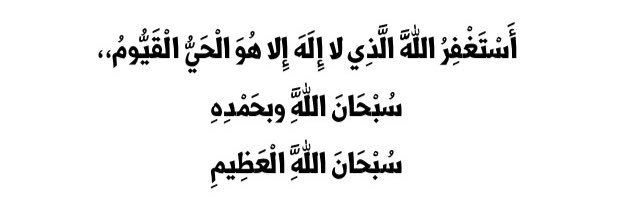 أَسْتَغْفِرُ اللَّهَ الَّذِي لا إِلَهَ إِلا هُوَ الْحَيُّ الْقَيُّومُ،،
سُبْحَانَ اللَّهِ وبحَمْدِهِ
سُبْحَانَ اللَّهِ الْعَظِيمِ